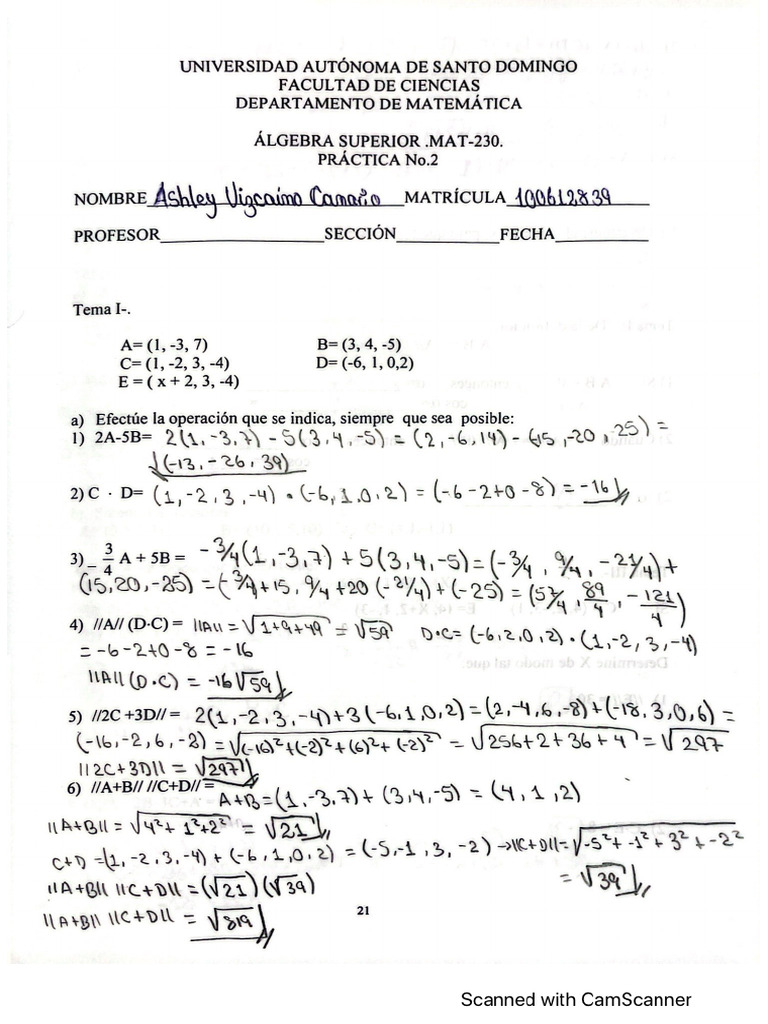 UNIVERSIDAD AUTÓNOMA DE SANTO DOMINGO
FACULTAD DE CIENCIAS
DEPARTAMENTO DE MATEMÁTICA
ÁLGEBRA SUPERIOR .MAT-230.
PRÁCTICA No.2
NOMBRE Ashley Vizcaino Canario MATRÍCULA 100612839
PROFESOR_________________SECCIÓN___________FECHA__________
Tema I-.
A= (1, -3, 7) B= (3, 4, -5)
C= (1, -2, 3, -4) D= (-6, 1, 0,2)
E = ( x + 2, 3, -4)
a) Efectúe la operación que se indica, siempre que sea posible:
1) 2A-5B= 2(1,-3,7) - 5(3,4,-5) = (2,-6,14) - (15,-20,-25) =
(-13,-26,39)
2) C · D= (1,-2,3,-4) • (-6,1,0,2) = (-6-2+0-8) = -16
3) - 3/4 A + 5B = -3/4(1,-3,7) + 5(3,4,-5) = (-3/4, 9/4, -21/4) +
(15,20,-25) = (-3/4+15, 9/4+20 (-21/4) + (-25) = (57/4, 89/4, -121/4)
4) //A// (D·C) = ||A|| = √1+9+49 = √59 D•C= (-6,2,0,2) • (1,-2,3,-4)
= -6-2+0-8 = -16
||A|| (D•C) = -16√59
5) //2C +3D// = 2(1,-2,3,-4)+3(-6,1,0,2) = (2,-4,6,-8)+(-18,3,0,6) =
(-16,-2,6,-2) = √(-16)²+(-2)²+(6)²+(-2)² = √256+2+36+4 = √297
||2C+3D|| = √297
6) //A+B// //C+D// = A+B = (1,-3,7) + (3,4,-5) = (4,1,2)
||A+B|| = √4²+1²+2² = √21
C+D = (1,-2,3,-4) + (-6,1,0,2) = (-5,-1,3,-2) → ||C+D|| = √-5²+-1²+3²+-2²
= √39
||A+B|| ||C+D|| = (√21)(√39)
||A+B|| ||C+D|| = √819
21
Scanned with CamScanner